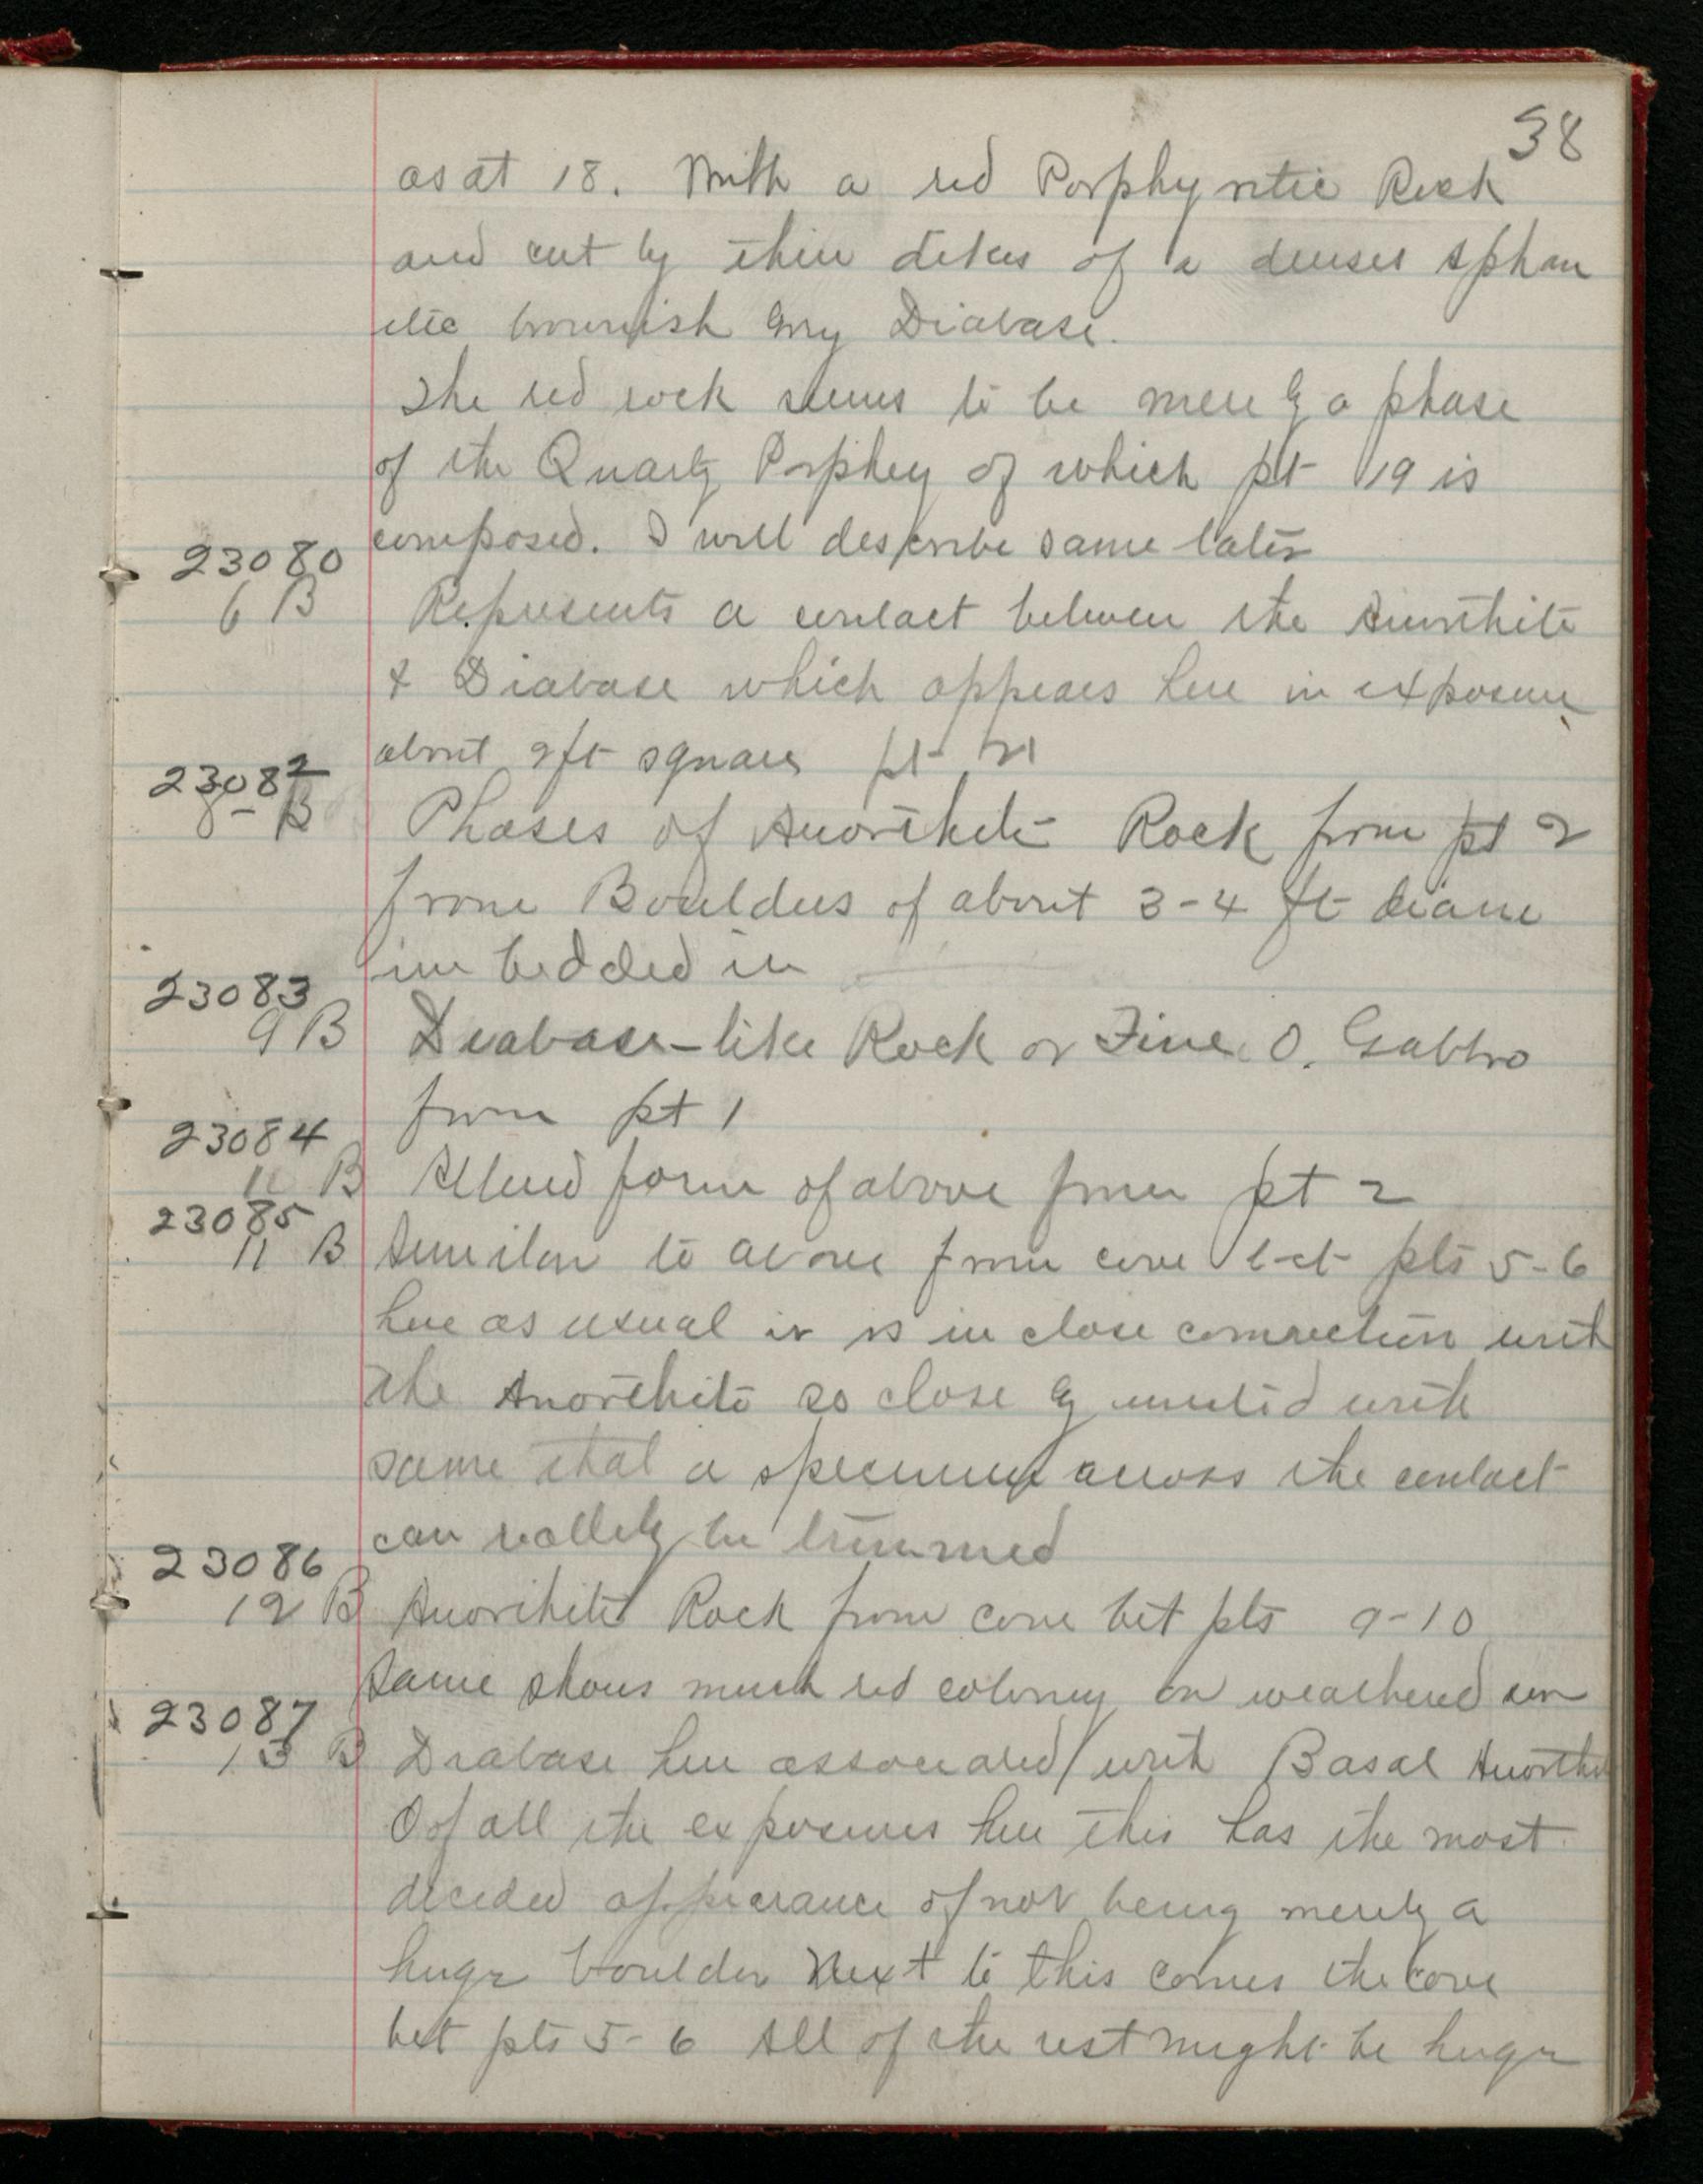 38
as at 18. With a red Porphyritic Rock
and cut by thin dikes of a denser Aphan
itic brownish Gray Diabase.
The red rock seems to be merely a phase
of the Quartz Porphry of which pt 19 is
composed. I will describe same later
23080
6 B Represents a contact between the Anorthite
& Diabase which appears here in exposure
about 2ft square pt 21
23082
8 - B Phases of Anorthite Rock from pt 2
from Boulders of about 3-4 ft diame
imbedded in
23083
9 B Diabase-like Rock or Fine O. Gabbro
from pt 1
23084
10 B Altered form of above from pt 2
23085
11 B Similar to above from cove bet pts 5-6
here as usual it is in close connection with
the Anorthite so closely united with
same that a specimen across the contact
can readily be trimmed
23086
12 B Anorthite Rock from cove bet pts 9-10
Same shows much red coloring on weathered sur
23087
13 B Diabase here associated with Basal Anorthi
Of all the exposures here this has the most
decided appearance of not being merely a
huge boulder Next to this comes the cove
bet pts 5-6 All of the rest might be huge